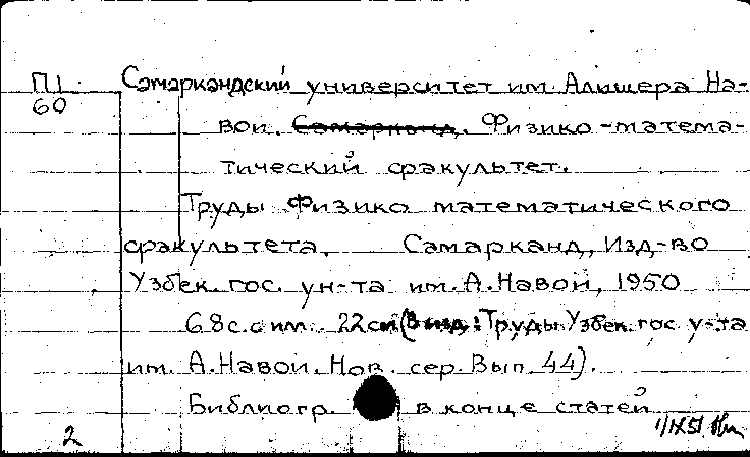 П1 Самаркандский университет им. Алишера На-
60
вои. Самарканд. Физико-матема-
тический факультет.
Труды Физико математического
факультета. Самарканд, Изд-во
Узбек. гос. ун-та им. А. Навои, 1950
68с. с им. 22см (В изд.: Труды Узбек. гос. у-та
им. А. Навои. Нов. сер. Вып. 44).
Библиогр. в конце статей
2 1/IX51